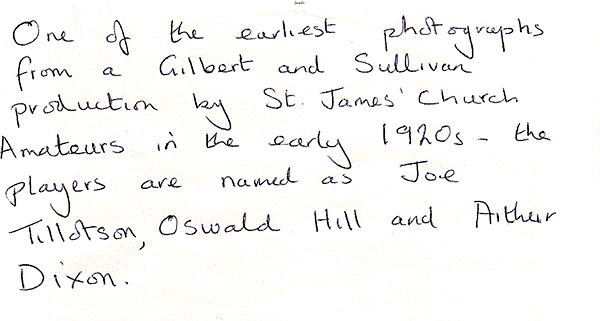 One of the earliest photographs
from a Gilbert and Sullivan
production by St. James' Church
Amateurs in the early 1920s - the
players are named as Joe
Tillotson, Oswald Hill and Arthur
Dixon.